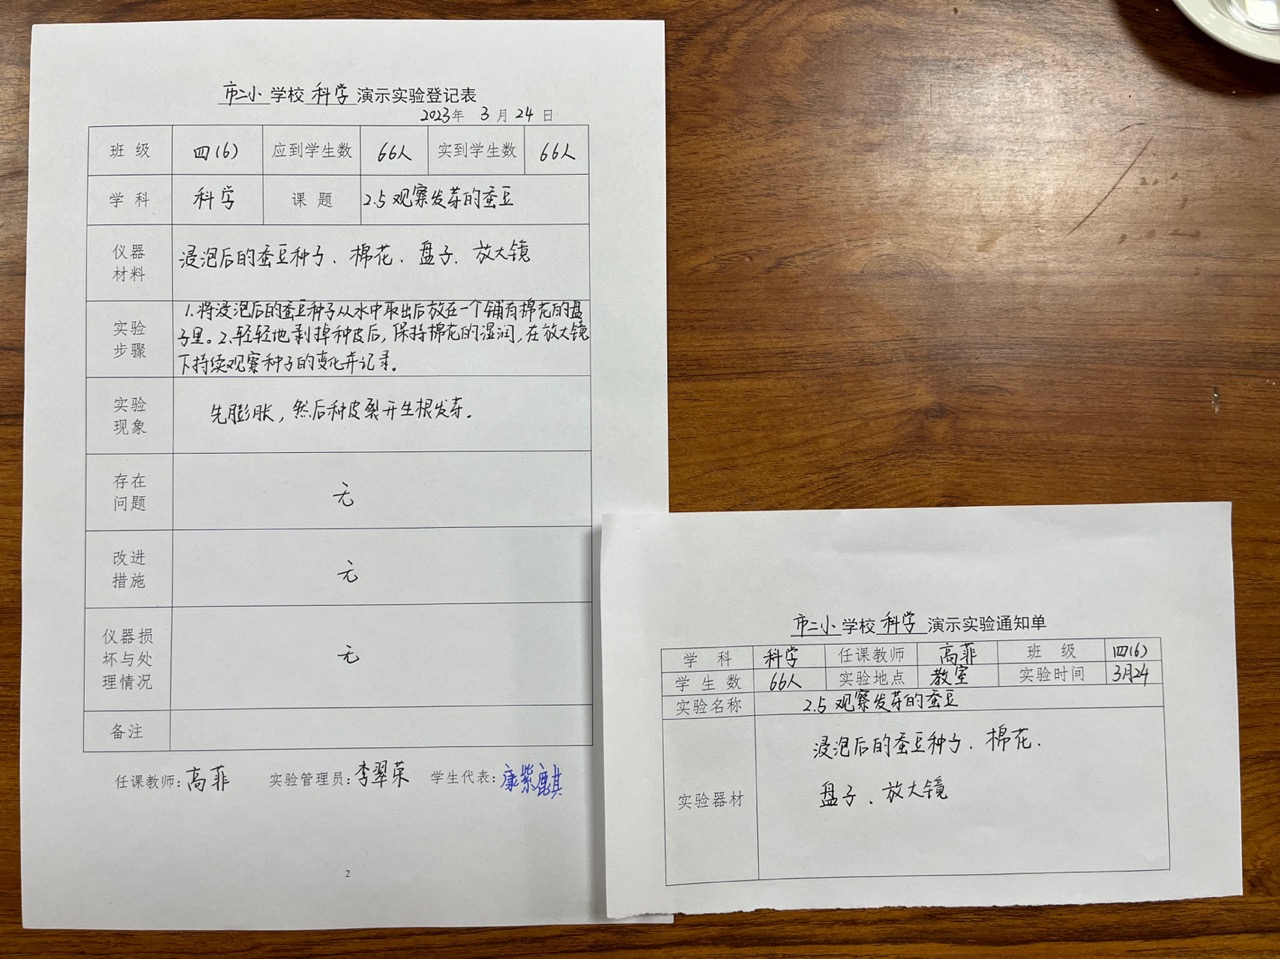 市二小学校科学演示实验登记表
2023年 3月24日
班级 四(6) 应到学生数 66人 实到学生数 66人
学科 科学 课题 2.5 观察发芽的蚕豆
仪器材料 浸泡后的蚕豆种子、棉花、盘子、放大镜
实验步骤
1.将浸泡后的蚕豆种子从水中取出后放在一个铺有棉花的盘
子里。2.轻轻地剥掉种皮后,保持棉花的湿润,在放大镜
下持续观察种子的变化并记录。
实验现象 先膨胀,然后种皮裂开生根发芽。
存在问题 无
改进措施 无
仪器损坏与处理情况 无
备注
任课教师:高菲 实验管理员:李翠荣 学生代表:康紫麒
2
市二小学校科学演示实验通知单
学科 科学 任课教师 高菲 班级 四(6)
学生数 66人 实验地点 教室 实验时间 3月24
实验名称 2.5 观察发芽的蚕豆
实验器材
浸泡后的蚕豆种子、棉花、
盘子、放大镜